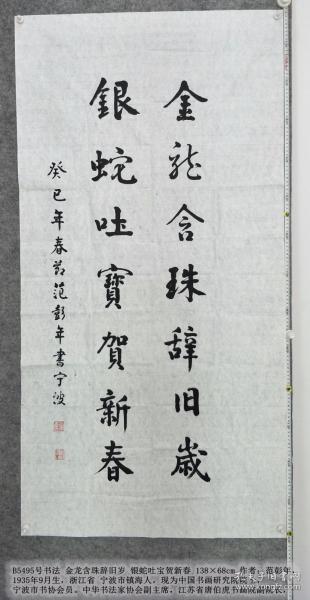 金龍含珠辭旧歲
銀蛇吐寶賀新春
癸巳年春節范彭年書宁波
B5495号书法 金龙含珠辞旧岁 银蛇吐宝贺新春 138×68cm 作者：范彰年，
1935年9月生，浙江省 宁波市镇海人。现为中国书画研究院
宁波市书协会员。中华书法家协会副主席，江苏省唐伯虎书画院副院长，